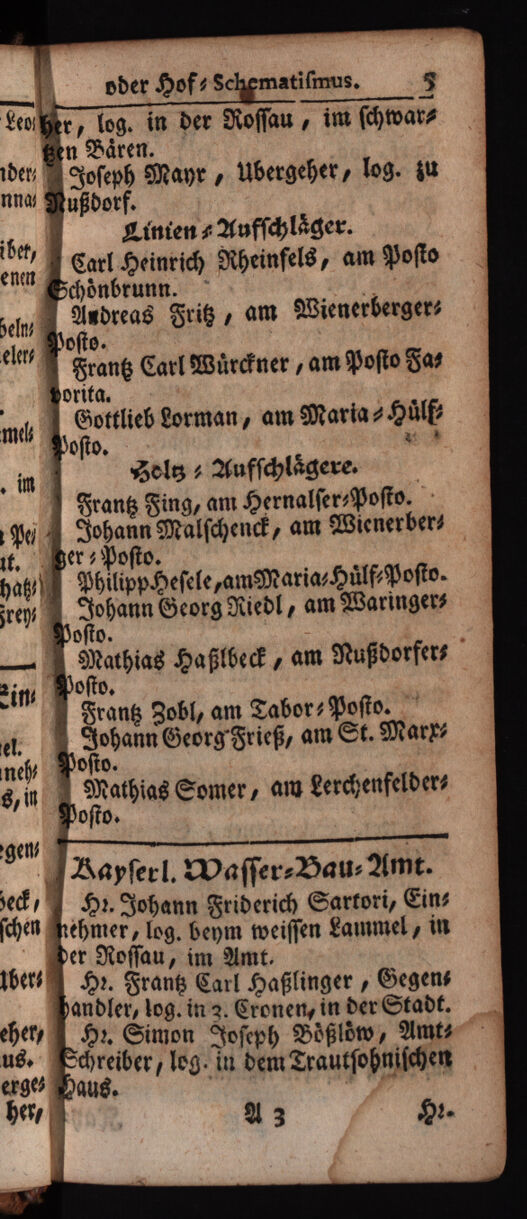 oder Hof⸗Schematismus. 5
her, log. in der Rossau, im schwar⸗
tzen Bären.
Joseph Mayr, Ubergeher, log. zu
Nußdorf.
Linien⸗Aufschläger.
Carl Heinrich Rheinfels, am Posto
Schönbrunn.
Andreas Fritz, am Wienerberger⸗
Posto.
Frantz Carl Würckner, am Posto Fa⸗
vorita.
Gottlieb Lorman, am Maria⸗Hülf⸗
Posto.
Holtz⸗Aufschlägere.
Frantz Fing, am Hernalser⸗Posto.
Johann Malschenck, am Wienerber⸗
ger⸗Posto.
Philipp Hesele, am Maria⸗Hülf⸗Posto.
Johann Georg Riedl, am Waringer⸗
Posto.
Mathias Haßlbeck, am Nußdorfer⸗
Posto.
Frantz Zobl, am Tabor⸗Posto.
Johann Georg Frieß, am St. Marx⸗
Posto.
Mathias Somer, am Lerchenfelder⸗
Posto.
Kayserl. Wasser⸗Bau⸗Amt.
Hr. Johann Friderich Sartori, Ein⸗
nehmer, log. beym weissen Lammel, in
der Rossau, im Amt.
Hr. Frantz Carl Haßlinger, Gegen⸗
handler, log. in 3. Cronen, in der Stadt.
Hr. Simon Joseph Bößlöw, Amt⸗
Schreiber, log. in dem Trautsohnischen
Haus.
A 3 Hr.